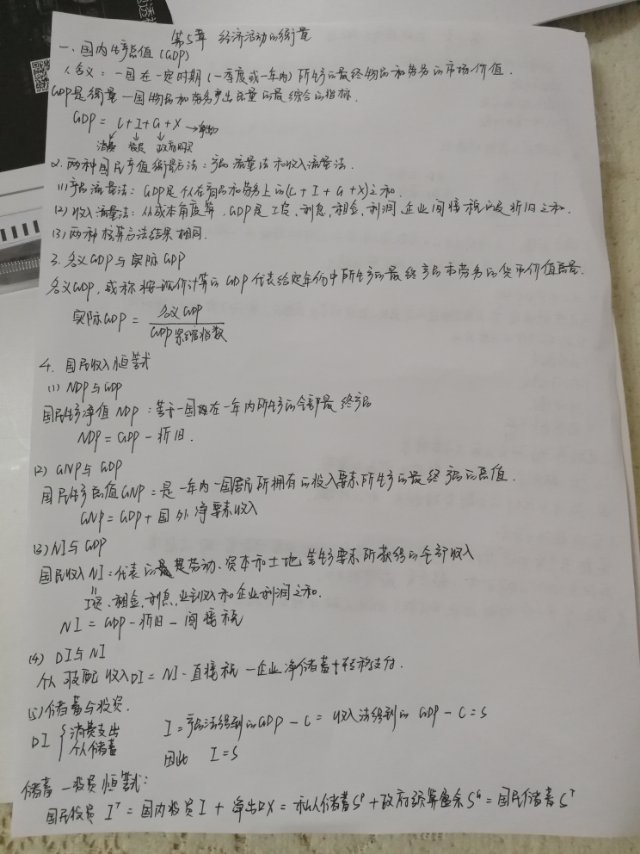 第5章 经济活动的衡量
一、国内生产总值(GDP)
1.含义:一国在一定时期(一季度或一年内)所生产的最终物品和劳务的市场价值.
GDP是衡量一国物品和劳务产出总量的最综合的指标.
GDP = C+I+G+X →净出口
消费 投资 政府购买
2.两种国民产值衡量方法:产品流量法和收入流量法.
(1)产品流量法:GDP是人在产品和劳务上的(C+I+G+X)之和.
(2)收入流量法:从成本角度算,GDP是工资、利息、租金、利润、企业间接税以及折旧之和.
(3)两种核算方法结果相同.
3.名义GDP与实际GDP
名义GDP,或称按现价计算的GDP代表给定年份中所生产的最终产品和劳务的货币价值总量.
实际GDP = 名义GDP / GDP紧缩指数
4.国民收入恒等式
(1) NDP与GDP
国民生产净值NDP:等于一国在一年内所生产的全部最终产品
NDP = GDP - 折旧.
(2) GNP与GDP
国民生产总值GNP:是一年内一国居民所拥有的投入要素所生产的最终产品的总值.
GNP = GDP + 国外净要素收入
(3) NI与GDP
国民收入NI:代表的是劳动、资本和土地等生产要素所获得的全部收入
工资、租金、利息、业主收入和企业利润之和.
NI = GDP - 折旧 - 间接税
(4) DI与NI
个人可支配收入DI = NI - 直接税 - 企业净储蓄 + 转移支付.
(5)储蓄与投资.
DI { 消费支出 个人储蓄 I = 产品法得到的GDP - C = 收入法得到的GDP - C = S
因此 I = S
储蓄—投资恒等式:
国民投资 Iᵀ = 国内投资I + 净出口X = 私人储蓄Sᴾ + 政府预算盈余Sᴳ = 国民储蓄Sᵀ